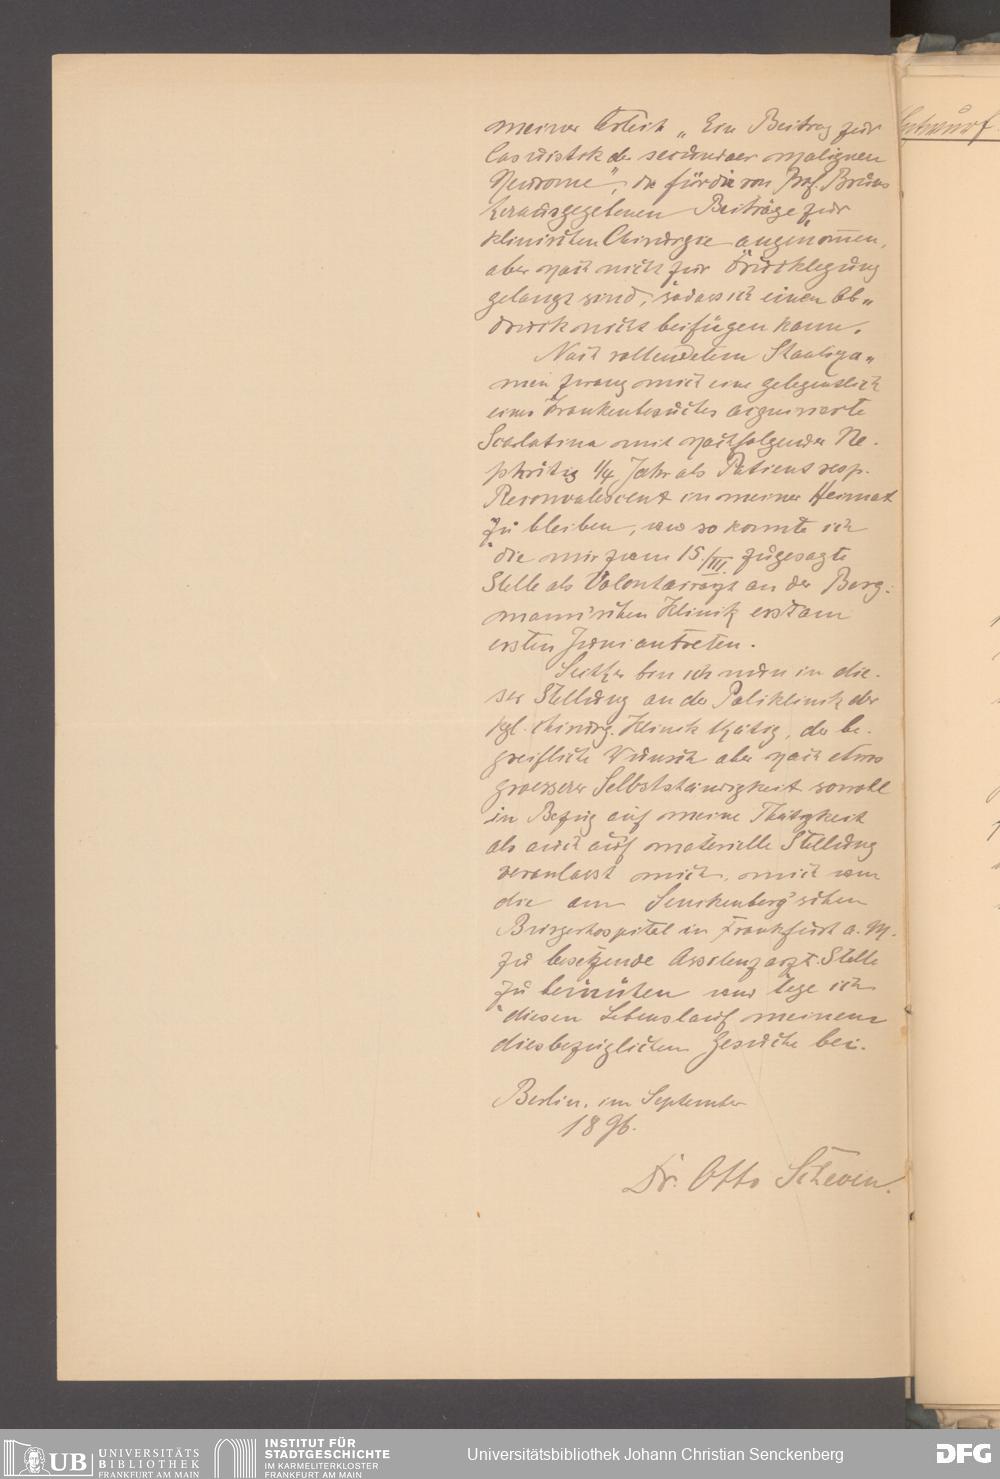 meiner Arbeit „Ein Beitrag zur
Casuistik der secundaer malignen
Neurome", die für die von Prof. Bruns
herausgegebenen Beiträge zur
klinischen Chirurgie angenom̅en,
aber noch nicht zur Drucklegung
gelangt sind, sodass ich einen Ab„
druck nicht beifügen kann.
Nach vollendetem Staatsexa„
men zwang mich eine gelegentlich
eines Krankenbesuches acquirierte
Scarlatina mit nachfolgender Ne-
phritis 1/4 Jahr als Patient resp.
Reconvalescent in meiner Heimat
zu bleiben, und so konnte ich
die mir zum 15./III. zugesagte
Stelle als Volontairarzt an der Berg-
mann'schen Klinik erst am
ersten Juni antreten.
Seither bin ich nun in die-
ser Stellung an der Poliklinik der
kgl. chirurg. Klinik thätig, der be-
greifliche Wunsch aber nach etwas
groesserer Selbstständigkeit sowohl
in Bezug auf meine Thätigkeit
als auch auf materielle Stellung
veranlasst mich, mich um
die am Senckenberg'schen
Bürgerhospital in Frankfurt a. M.
zu besetzende Assistenzarzt-Stelle
zu bewerben und lege ich
diesen Lebenslauf meinem
diesbezüglichen Gesuche bei.
Berlin, im September
1896.
Dr. Otto Scheven.
Entwurf
UB UNIVERSITÄTS
BIBLIOTHEK
FRANKFURT AM MAIN
INSTITUT FÜR
STADTGESCHICHTE
IM KARMELITERKLOSTER
FRANKFURT AM MAIN
Universitätsbibliothek Johann Christian Senckenberg
DFG